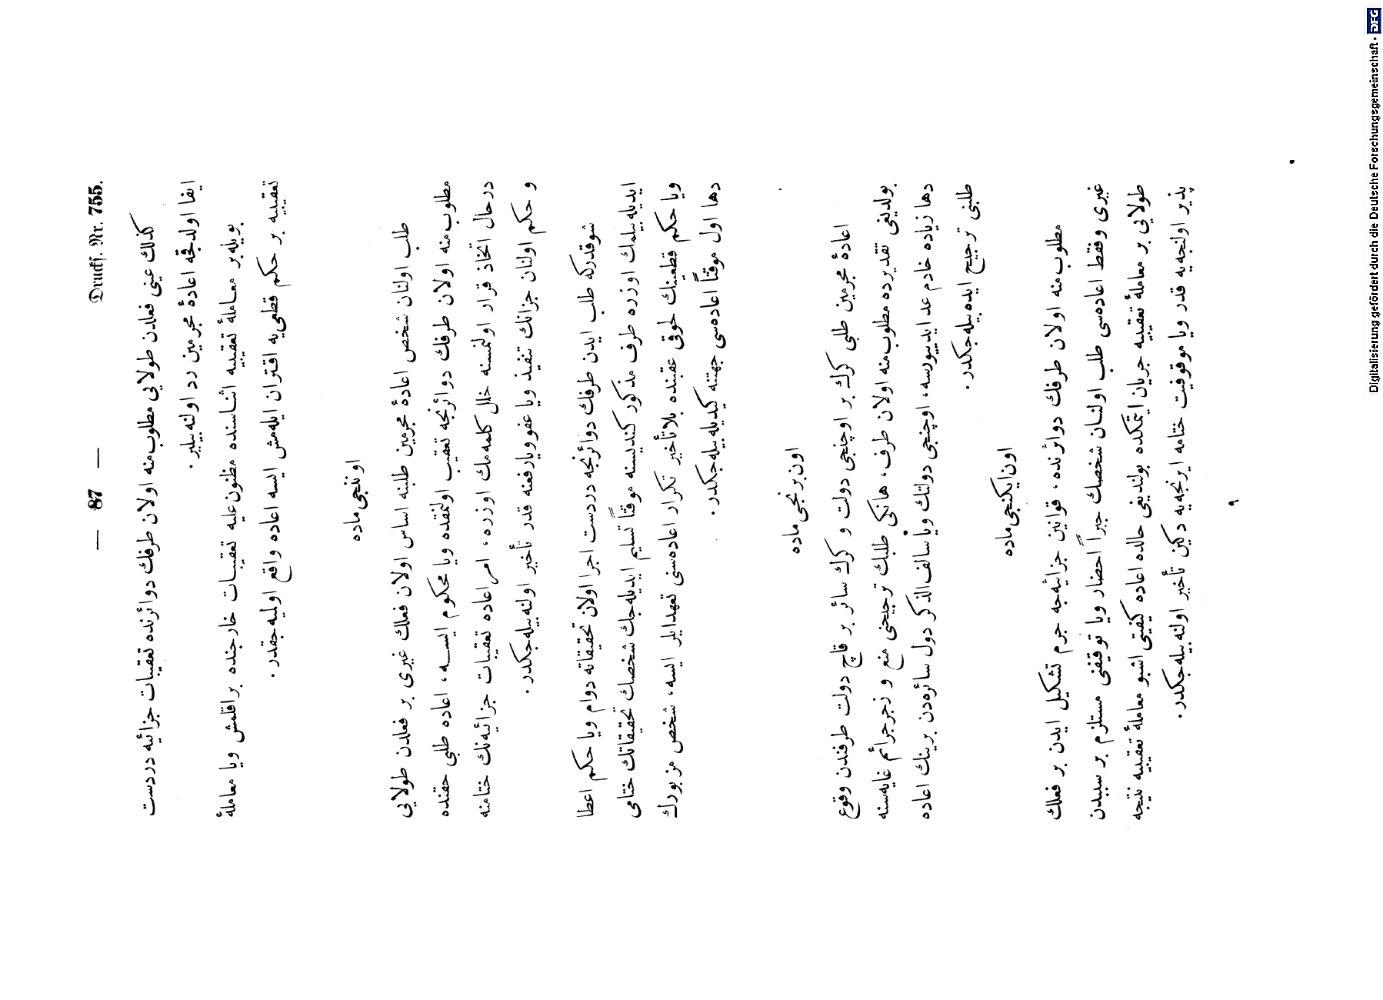 Druckf. Nr. 755.
— 87 —
كذلك عینی فعلدن طولایی مطلوب منه اولان طرفك دوائرنده تعقیبات جزائیه دردست
ایفا اولدقجه اعادهٔ مجرمین رد اولنه بیلیر .
بویله بر معاملهٔ تعقیبیه اثناسنده مظنون علیه تعقیبات خارجنده براقلمش ویا معاملهٔ
تعقیبیه بر حكم قطعی یه اقتران ایله مش ایسه اعاده واقع اولمیه جقدر .
اوننجی ماده
طلب اولنان شخص اعادهٔ مجرمین طلبنه اساس اولان فعلك غیری بر فعلدن طولایی
مطلوب منه اولان طرفك دوائرنجه تعقیب اولنمقده ویا محكوم ایسه ، اعاده طلبی حقنده
درحال اتخاذ قرار اولنمسنه خلل كلمه مك اوزره ، امر اعاده تعقیبات جزائیه نك ختامنه
و حكم اولنان جزانك تنفیذ ویا عفو ویا رفعنه قدر تأخیر اولنه بیله جكدر .
شوقدركه طلب ایدن طرفك دوائرنجه دردست اجرا اولان تحقیقاته دوام ویا حكم اعطا
ایدیله بیلمك اوزره طرف مذكور كندیسنه موقتاً تسلیم ایدیله جك شخصك تحقیقاتك ختامی
ویا حكم قطعینك لحوقی عقبنده بلا تأخیر تكرار اعاده سنی تعهد ایلر ایسه ، شخص مزبورك
دها اول موقتاً اعاده سی جهتنه كیدیله بیله جكدر .
اون برنجی ماده
اعادهٔ مجرمین طلبی كرك بر اوچنجی دولت و كرك سائر بر قاچ دولت طرفندن وقوع
بولدیغی تقدیرده مطلوب منه اولان طرف ، هانكی طلبك ترجیحی منع و زجر جرائم غایه سنه
دها زیاده خادم عد ایدییورسه ، اوچنجی دولتك ویا سالف الذكر دول سائره دن برینك اعاده
طلبنی ترجیح ایده بیله جكدر .
اون ایكنجی ماده
مطلوب منه اولان طرفك دوائرنده ، قوانین جزائیه جه جرم تشكیل ایدن بر فعلك
غیری وفقط اعاده سی طلب اولنان شخصك جبراً احضار ویا توقیفنی مستلزم بر سببدن
طولایی بر معاملهٔ تعقیبیه جریان ایتمكده بولندیغی حالده اعاده كیفیتی اشبو معاملهٔ تعقیبیه نتیجه
پذیر اولنجه یه قدر ویا موقوفیت ختامه ایرنجه یه دكین تأخیر اولنه بیله جكدر .
٩
Digitalisierung gefördert durch die Deutsche Forschungsgemeinschaft - DFG